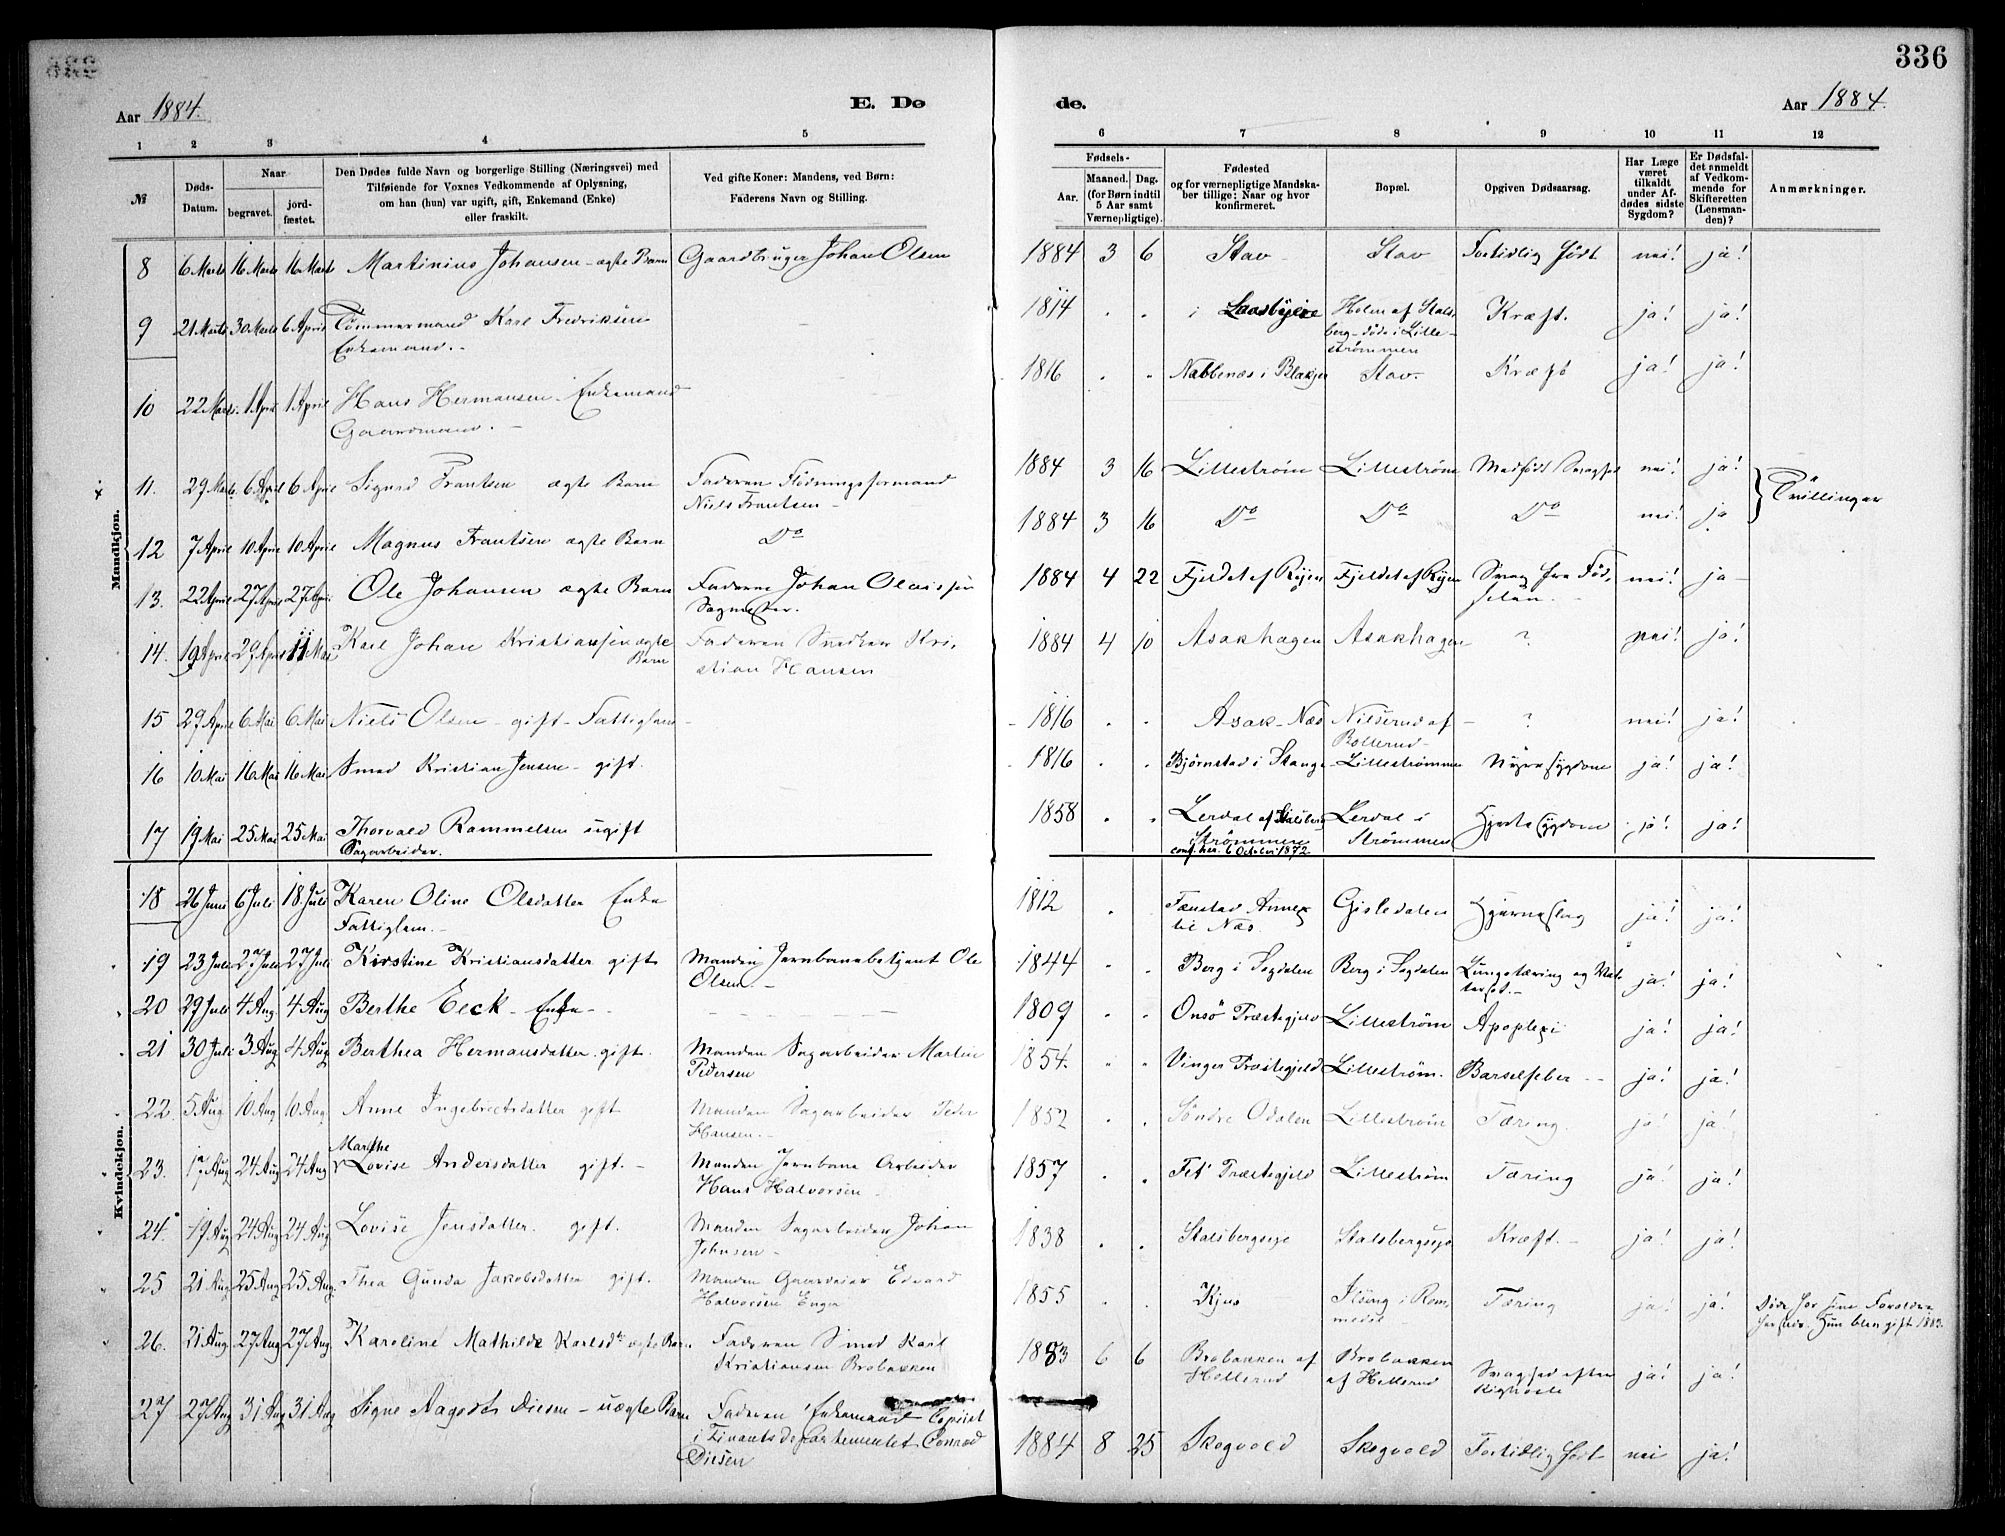 336
Aar 1884.
E. Døde.
Aar 1884.
1 2 3 4 5 6 7 8 9 10 11 12
№
Døds-Datum.
Naar
begravet.
jordfæstet.
Den Dødes fulde Navn og borgerlige Stilling (Næringsvei) med
Tilføiende for Voxnes Vedkommende af Oplysning,
om han (hun) var ugift, gift, Enkemand (Enke)
eller fraskilt.
Ved gifte Koner: Mandens, ved Børn:
Faderens Navn og Stilling.
Fødsels-
Aar.
Maaned. Dag.
(for Børn indtil
5 Aar samt
Værnepligtige).
Fødested
og for værnepligtige Mandskaber tillige: Naar og hvor
konfirmeret.
Bopæl.
Opgiven Dødsaarsag.
Har Læge
været
tilkaldt
under Afdødes sidste
Sygdom?
Er Dødsfaldet anmeldt
af Vedkommende for
Skifteretten
(Lensmanden)?
Anmærkninger.
Mandkjøn.
8 6 Marts 16 Marts 16 Marts Martinius Johansen - ægte Barn Gaardbruger Johan Olsen 1884 3 6 Stav Stav Fortidlig født nei! ja!
9 21 Marts 30 Marts 6 April Tømmermand Karl Fredriksen 1814 " " i Holm af Stals- Kræft. ja! ja!
Enkemand. - berg - døde i Lille-
strømmen
10 22 Marts 1 April 1 April Hans Hermansen Enkemand 1816 " " Nabbenæs i Blakjer Stav. Kræft ja! ja!
Gaardmand. -
11. 29 Marts 6 April 6 April Sigurd Frantsen ægte Barn Faderen Flødningsformand 1884 3 16 Lillestrøm Lillestrøm Medfødt Svaghed nei! ja! Tvillinger
Niels Frantsen -
12 7 April 10 April 10 April Magnus Frantsen ægte Barn Do 1884 3 16 Do Do Do nei! ja
13. 22 April 27 April 27 April Ole Johansen ægte Barn Faderen Johan Olaissen 1884 4 22 Fjeldet af Ryen Fjeldet af Ryen Svag fra Fød- nei! ja -
Sagmester. selen. -
14. 19 April 29 April 11 Mai Karl Johan Kristiansen ægte Faderen Snedker Kri- 1884 4 10 Asakhagen Asakhagen ? nei! ja!
Barn stian Hansen
15 29 April 6 Mai 6 Mai Niels Olsen - gift - Fattiglem - 1816 " " Asak - Næs Nilserud af ? nei! ja!
Bollerud -
16 10 Mai 16 Mai 16 Mai Smed Kristian Jensen - gift. 1816 " " Bjørnstad i Stange Lillestrømmen Nyresygdom ja! ja!
17 19 Mai 25 Mai 25 Mai Thorvald Rammelsen ugift 1858 " " Lerdal af Stalsberg Lerdal i Hjertesygdom ja! ja!
Sagarbeider. i Strømmen Strømmen
conf. her. 6 October 1872
Kvindekjøn.
18 26 Juni 6 Juli 18 Juli Karen Oline Olsdatter Enke 1812 " Fænstad Annex Gisledalen Hjerneslag ja! ja!
Fattiglem. - til Næs.
19 23 Juli 27 Juli 27 Juli Kirstine Kristiansdatter gift Manden Jernbanebetjent Ole 1844 " " Berg i Sogdalen Berg i Sogdalen Lungetæring og Vat- ja! ja!
Olsen - tersot. -
20 29 Juli 4 Aug. 4 Aug Berthe Eeck - Enke - 1809 " " Onsø Præstegjeld Lillestrøm Apoplexi ja! ja!
21 30 Juli 3 Aug 4 Aug Berthea Hermansdatter. gift. Manden Sagarbeider Martin 1854. " " Vinger Præstegjeld Lillestrøm. Barselfeber - - ja! ja!
Pedersen
22 5 Aug 10 Aug 10 Aug Anne Ingebretsdatter gift Manden Sagarbeider Peder 1852 " " Søndre Odalen Lillestrøm Tæring. ja! ja!
Hansen. -
Marthe
23. 17 Aug 24 Aug 24 Aug Lovise Andersdatter gift. - Manden Jernbane Arbeider 1857 " " Fet Præstegjeld Lillestrøm Tæring ja! ja!
Hans Halvorsen -
24. 19 Aug 24 Aug 24 Aug Lovise Jensdatter. gift. Manden Sagarbeider Johan 1838 " " Stalsbergseje Stalsbergseje Kræft. - ja! ja!
Johnsen -
25 21 Aug 25 Aug 25 Aug. Thea Gunda Jakobsdatter gift. Manden Gaardeier Edvard 1855 " " Kjus i Rom- Tæring ja! ja! Døde hos sine Forældre
Halvorsen Enger medal - Hun blev gift 1883.
26. 21 Aug 27 Aug 27 Aug. Karoline Mathilde Karlsdr ægte Barn Faderen Smed Karl 1883 6 6 Brobakken af Brobakken Svaghed efter ja! ja!
Kristiansen Brobakken Hellerud af Hellerud Kighoste
27 27 Aug 31 Aug 31 Aug Signe Aagodt Diesen - uægte Barn Faderen Enkemand Copiist 1884 8 25 Skogvold Skogvold Fortidlig født nei ja!
i Finantsdepartementet Conrad
Diesen